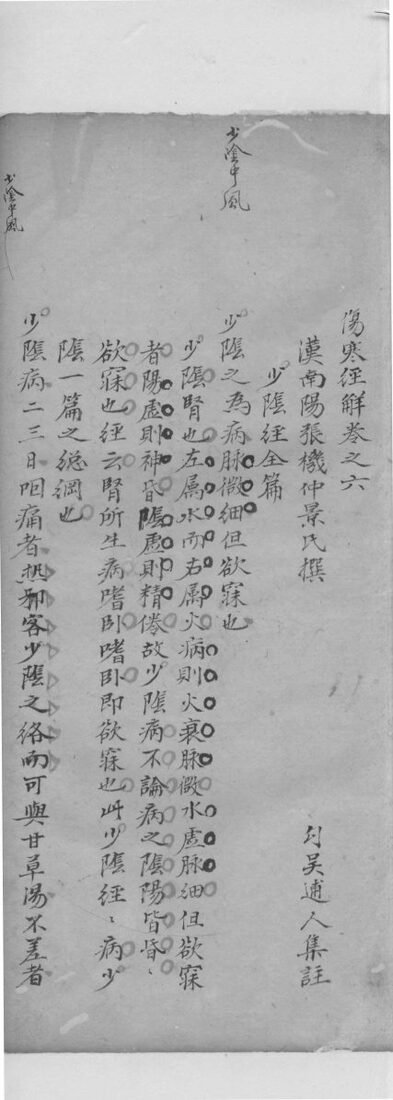 少陰中風
傷寒經解卷之六
漢南陽張機仲景氏撰
勾吳逋人集註
少陰經全篇
少陰之為病脉微細但欲寐也
少陰腎也左属水而右属火病則火衰脉微水虛脉细但欲寐
者陽虛則神昏陰虛則精倦故少陰病不論病之陰陽皆昏〻
欲寐也經云腎所生病嗜卧嗜卧即欲寐也此少陰經〻病少
陰一篇之總綱也
少陰病二三日咽痛者热邪客少陰之络而可與甘草湯不差者
少陰中風